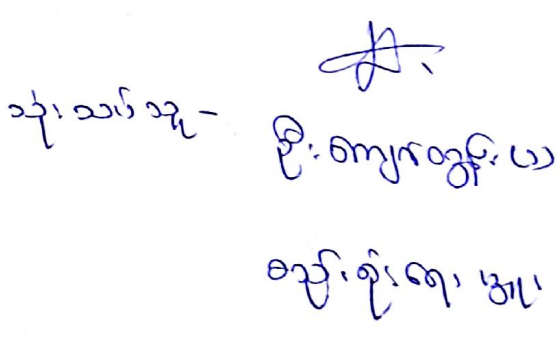 သုံးသပ်သူ - ဦးကျော်ထွန်းဟာ
စည်းရုံးရေးမှူး